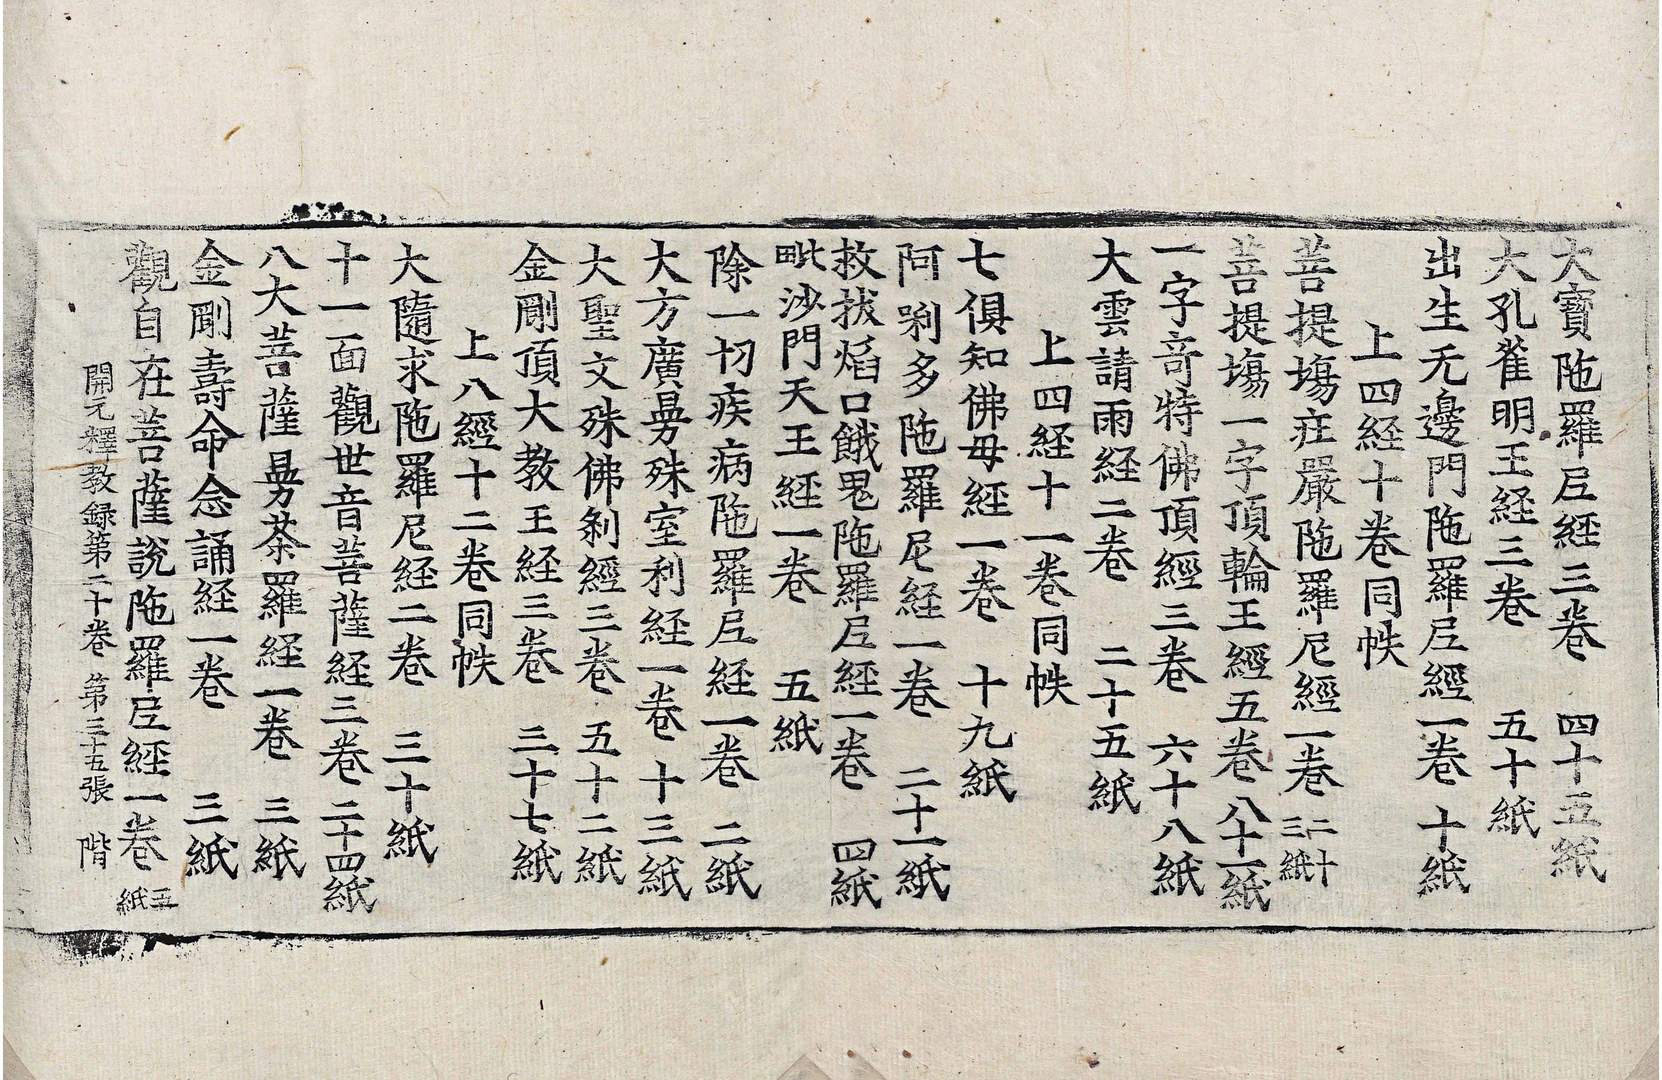 大寶陁羅𡰱経三卷　四十五紙
大孔雀明王経三卷　五十紙
出生无邊門陁羅𡰱經一卷　十紙
上四経十卷同帙
菩提塲庄嚴陁羅尼經一卷　二十三紙
菩提塲一字頂輪王經五卷　八十一紙
一字竒特佛頂經三卷　六十八紙
大雲請雨経二卷　二十五紙
上四経十一卷同帙
七俱知佛母経一卷　十九紙
阿唎多陁羅尼経一卷　二十一紙
救拔焰口餓鬼陁羅𡰱經一卷　四紙
毗沙門天王経一卷　五紙
除一切疾病陁羅𡰱経一卷　二紙
大方廣曼殊室利経一卷　十三紙
大聖文殊佛剎經三卷　五十二紙
金剛頂大教王経三卷　三十七紙
上八經十二卷同帙
大隨求陁羅尼経二卷　三十紙
十一面觀世音菩薩経三卷　二十四紙
八大菩薩曼荼羅経一卷　三紙
金剛壽命念誦経一卷　三紙
觀自在菩薩說陁羅𡰱經一卷　五紙
開元釋教録第二十卷　第三十五張　階